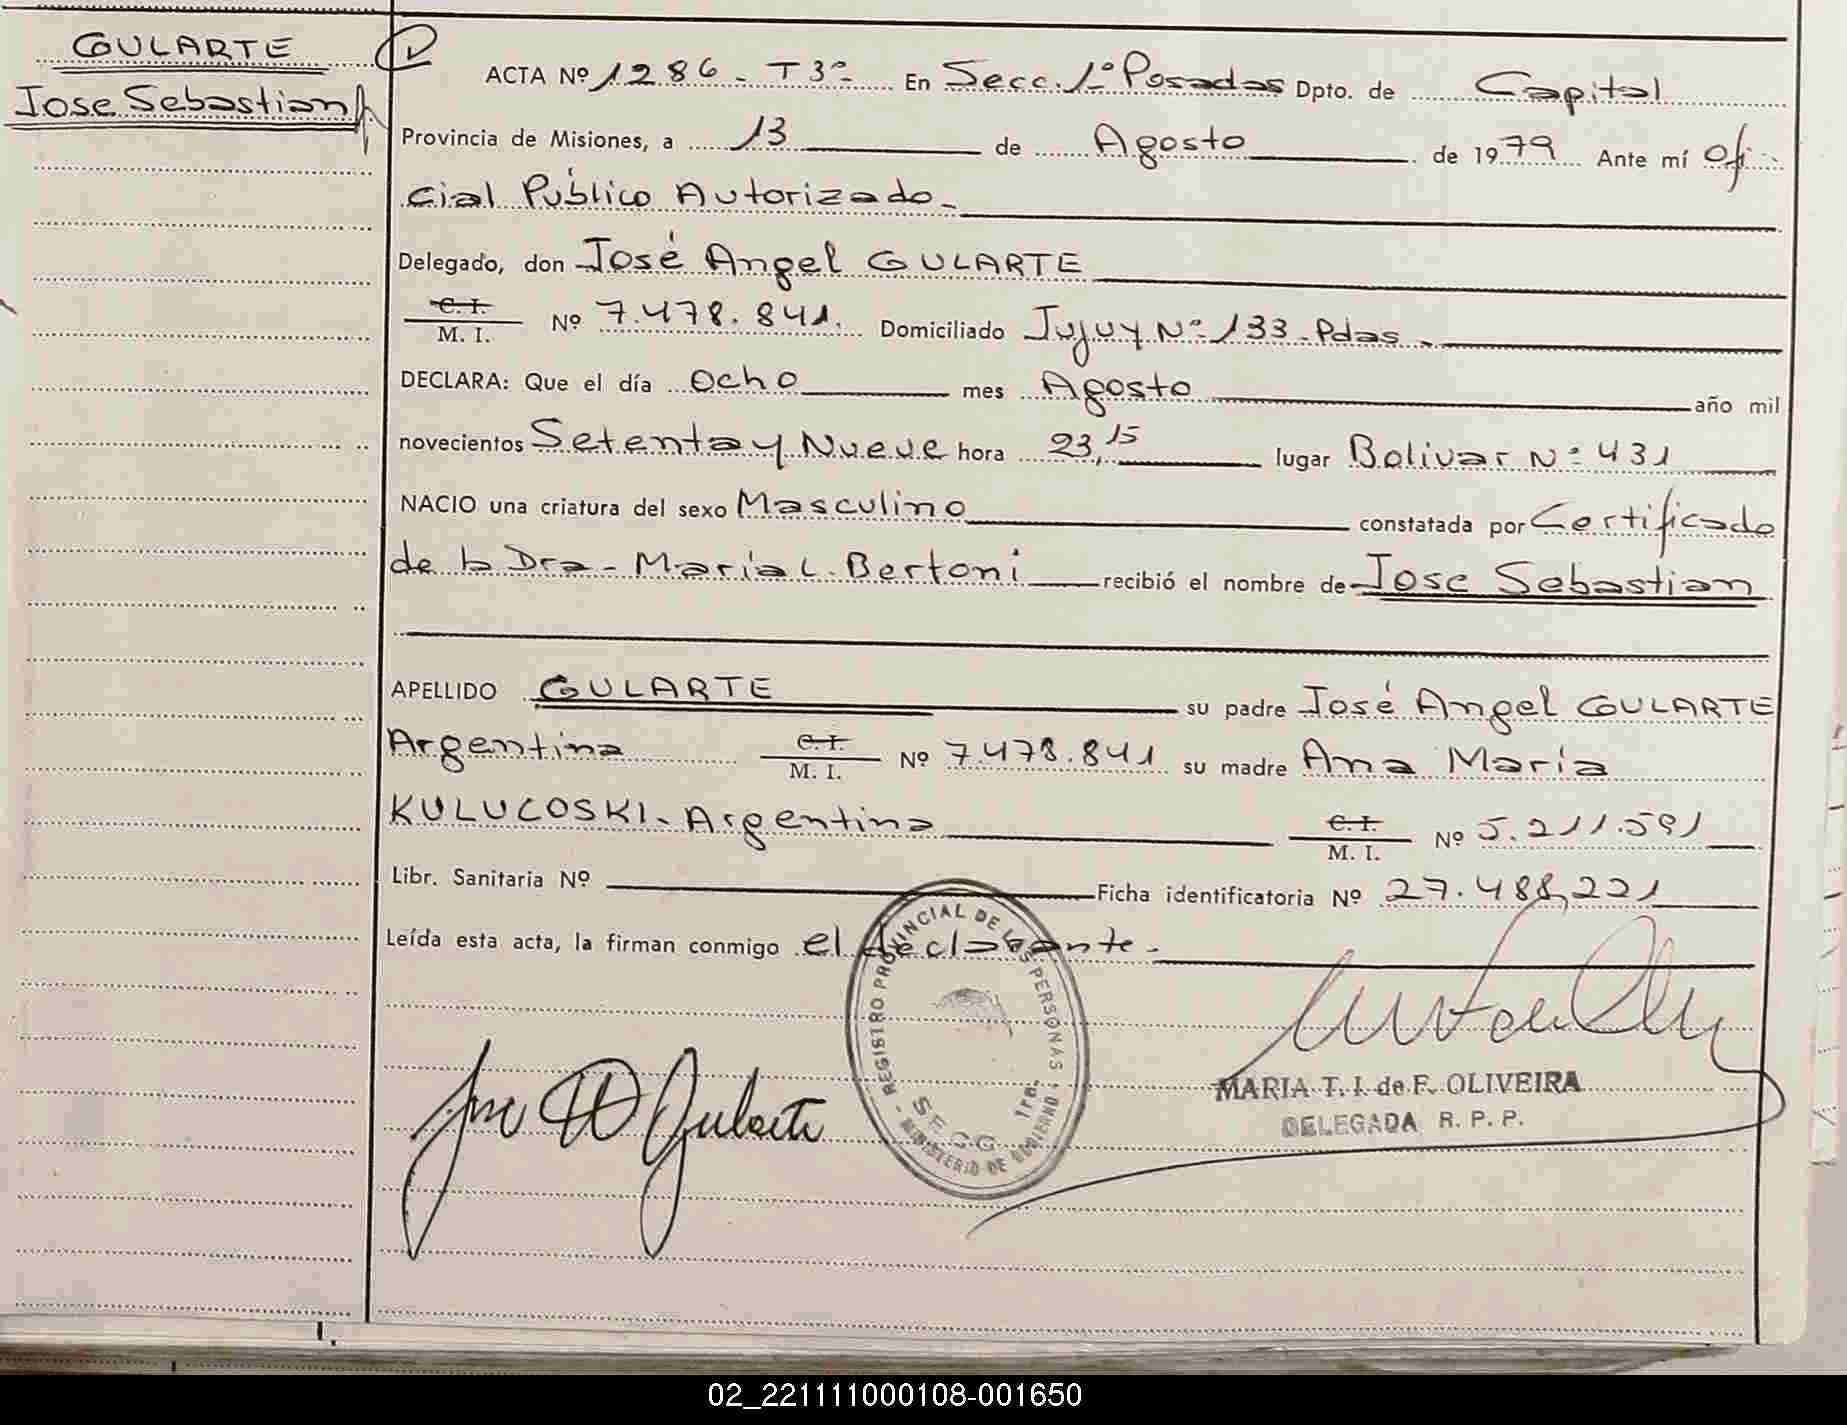 GULARTE
Jose Sebastian
ACTA Nº 1286 - T 3º- En Secc. 1º Posadas Dpto. de Capital
Provincia de Misiones, a 13 de Agosto de 1979 Ante mí Ofi-
cial Público Autorizado-
Delegado, don José Angel GULARTE
C. I.
M. I. Nº 7.478.841. Domiciliado Jujuy Nº 133 - Pdas -
DECLARA: Que el día Ocho mes Agosto año mil
novecientos Setenta y Nueve hora 23,15 lugar Bolivar Nº 431
NACIO una criatura del sexo Masculino constatada por Certificado
de la Dra - Maria L. Bertoni recibió el nombre de Jose Sebastian
APELLIDO GULARTE su padre José Angel GULARTE
Argentina C. I.
M. I. Nº 7.478.841 su madre Ana María
KULUCOSKI - Argentina C. I.
M. I. Nº 5.211.591
Libr. Sanitaria Nº Ficha identificatoria Nº 27.488,221
Leída esta acta, la firman conmigo el declarante -
REGISTRO PROVINCIAL DE LAS PERSONAS
SECC. 1ra.
MINISTERIO DE GOBIERNO
MARIA T. I. de F. OLIVEIRA
DELEGADA R. P. P.
02_221111000108-001650